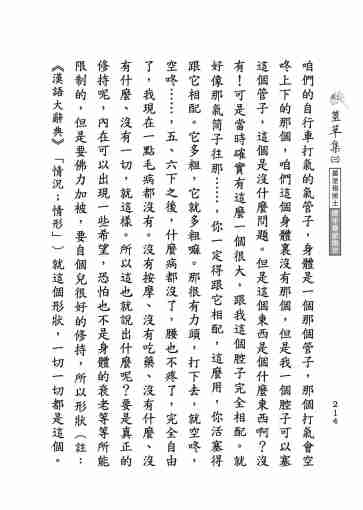 薑草集㈡
214
咱們的自行車打氣的氣管子，身體是一個那個管子，那個打氣會空
咚上下的那個，咱們這個身體裏沒有那個。但是我一個腔子可以塞
這個管子，這個是沒什麼問題。但是這個東西是個什麼東西啊？沒
有！可是當時確實有這麼一個很大，跟我這個腔子完全相配。就
好像那氣筒子往那……，你一定得跟它相配，這麼用，你活塞得
跟它相配。它多粗，它就多粗嘛。那很有力頭，打下去，就空咚，
空咚……，五、六下之後，什麼病都沒了，腰也不疼了，完全自由
了，我現在一點毛病都沒有。沒有按摩、沒有吃藥、沒有什麼、沒
有什麼、沒有一切，就這樣。所以這也就說出什麼呢？要是真正的
修持呢，內在可以出現一些希望，恐怕也不是身體的衰老等等所能
限制的，但是要佛力加被，要自個兒很好的修持，所以形狀（註：
《漢語大辭典》「情況；情形」）就這個形狀，一切一切都是這個。